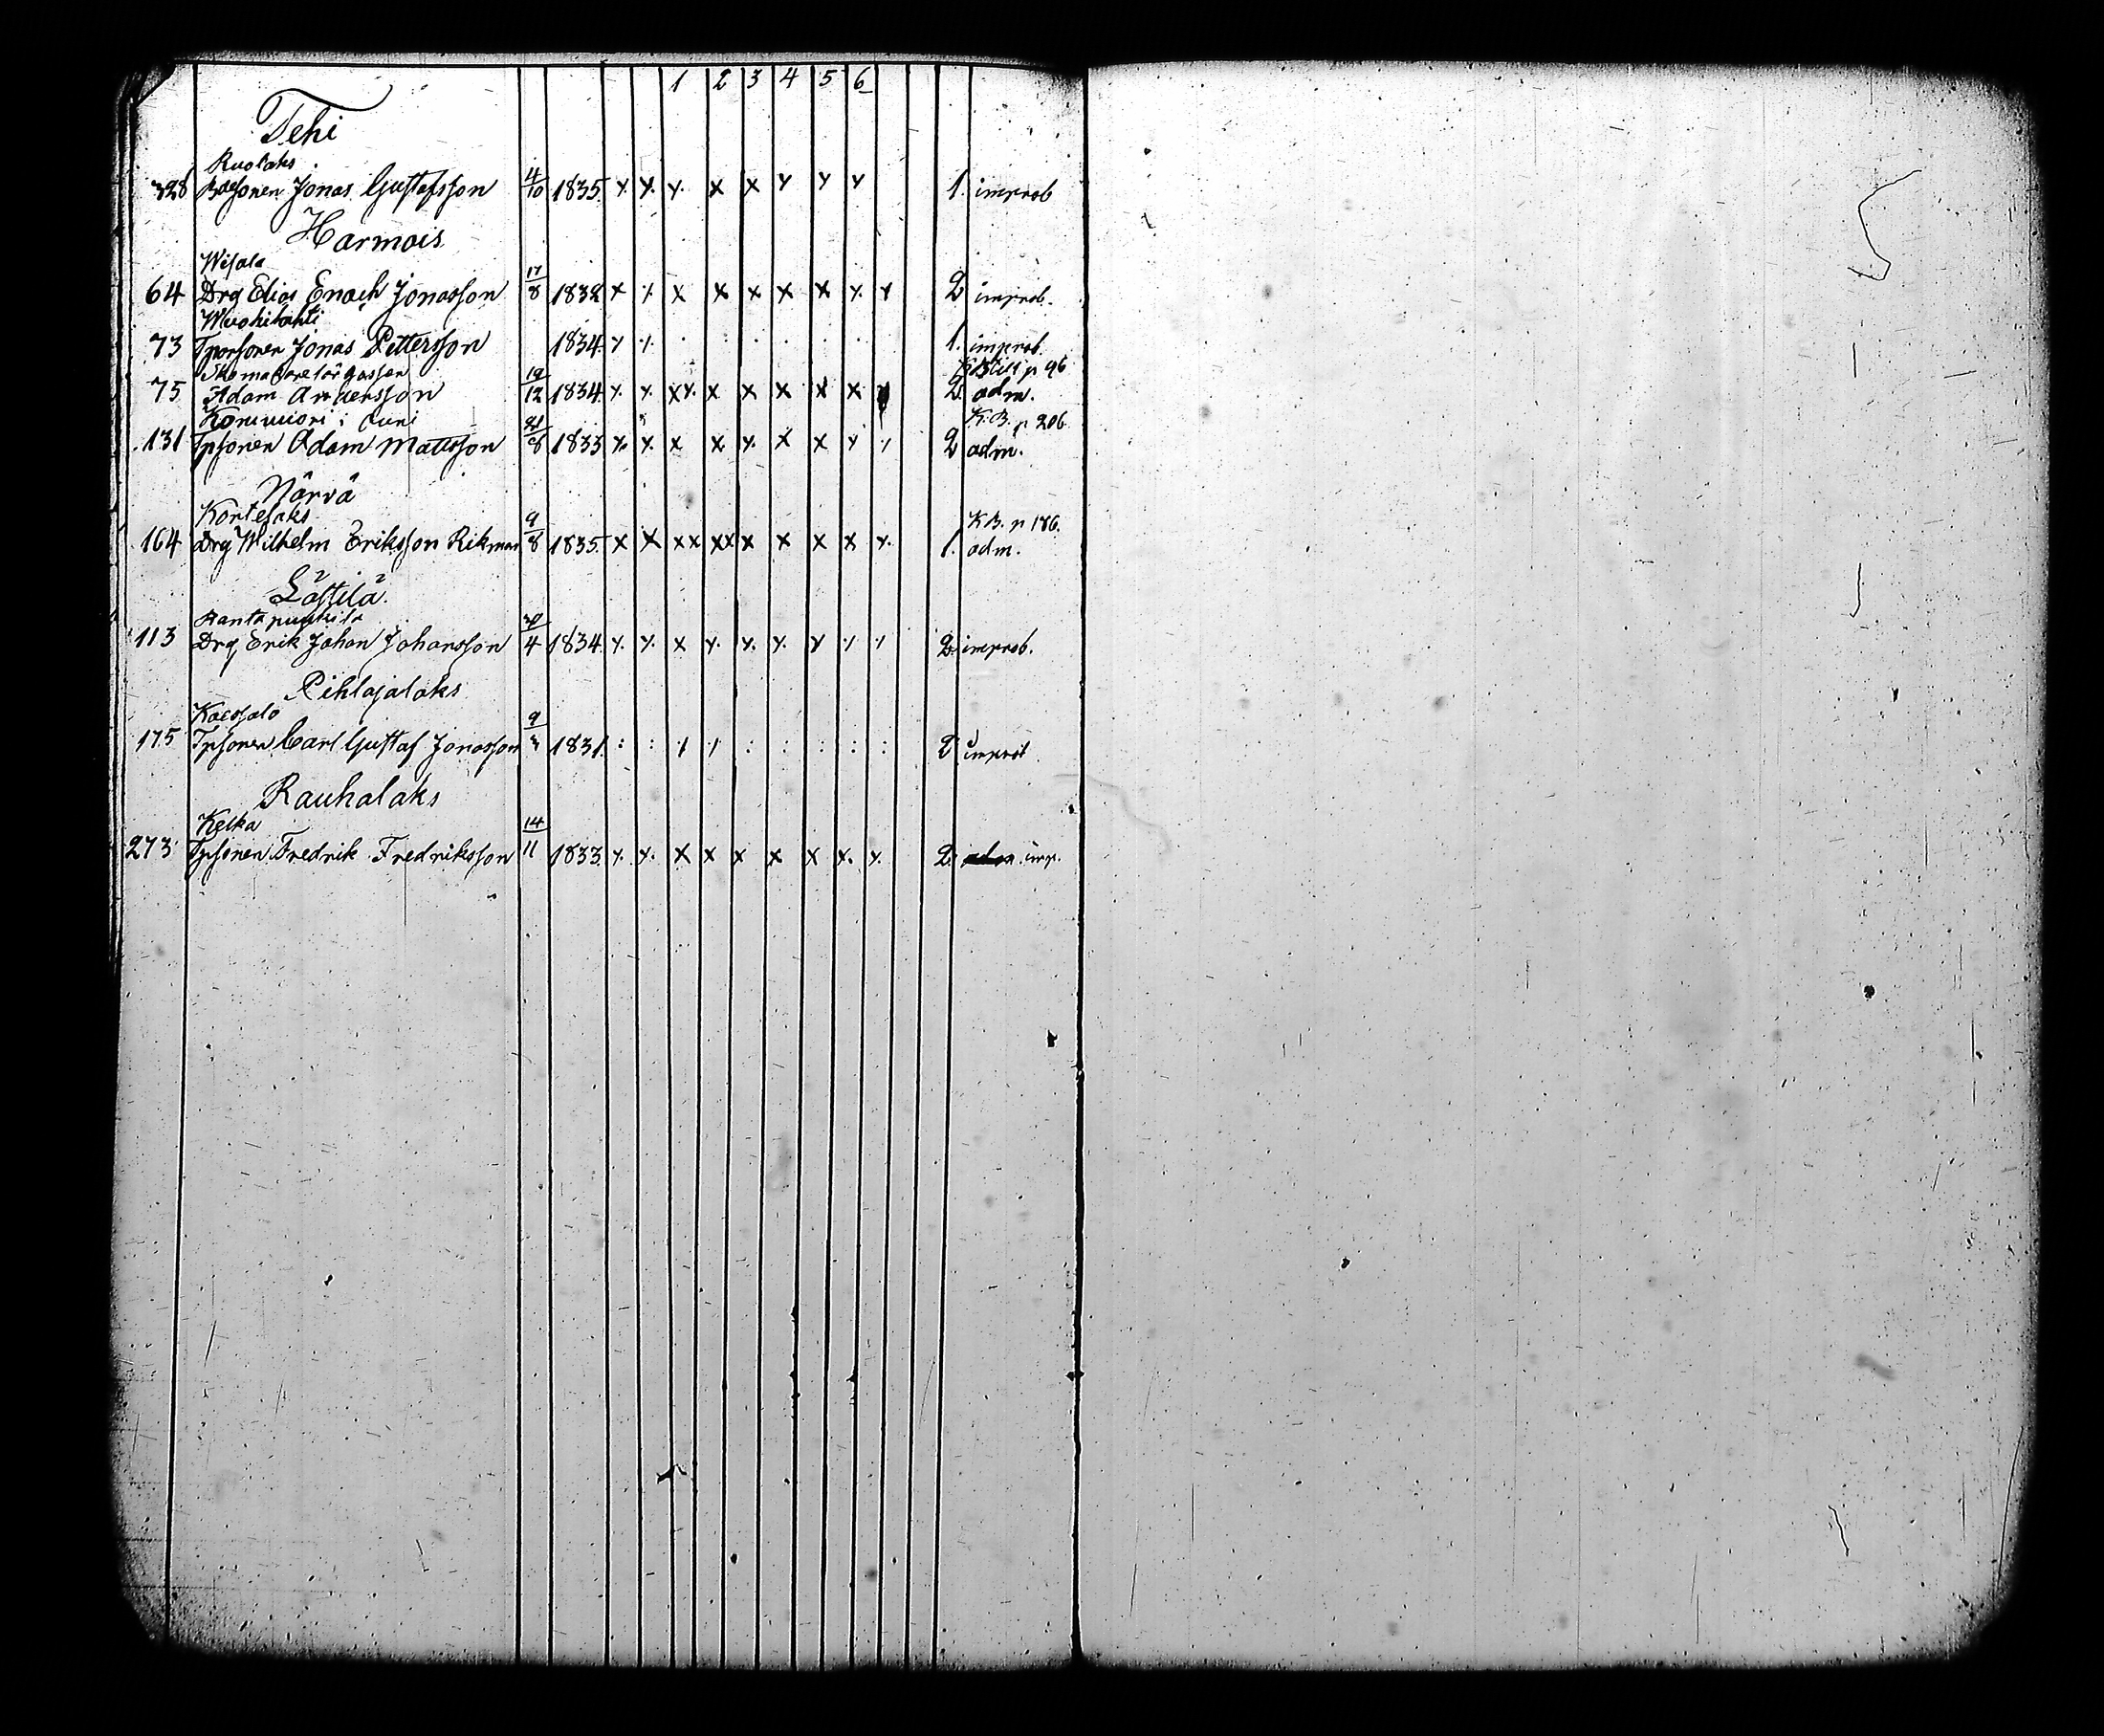 1 2 3 4 5 6
Tehi
Ruolaks
328 Jonas Gustafsson 4/10 1835 x x x x x x x x 1. improb
Harmois
Wisala
64 Drg Elias Enoch Jonasson 17/8 1832 x x x x x x x x x 2 improb.
Wuohilahti
73 Jonas Pettersson 1834 x x . . . . . . 1. improb.
p 96
75 Adam Andersson 19/12 1834 x x xx x x x x x 2. adm.
K.B. p 206
131 Tpsonen Adam Mattsson 8 1833 x x x x x x x x x 2 adm.
Närvä
Kortesaks K.B. p 186.
164 Drg Wilhelm Eriksson Rikman 9/8 1835 x x xx xx x x x x x 1. adm.
Låstilå
113 Drg Erik Johan Johansson 4 1834 x x x x x x x x x 2. improb.
Pihlajalaks
175 Tpsonen Carl Gustaf Jonasson 9/3 1831 : : / / : : : : : 2 improb
Rauhalaks
Kelka
273 Tpsonen Fredrik Fredriksson 14/11 1833 x x x x x x x x x 2. adm. imp.